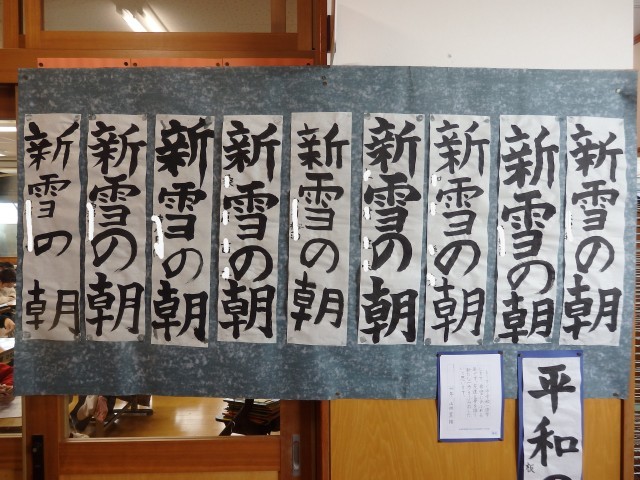 新雪の朝
新雪の朝
新雪の朝
新雪の朝
新雪の朝
新雪の朝
新雪の朝
新雪の朝
新雪の朝
平和の